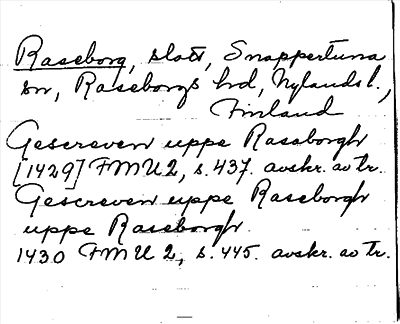 Raseborg, slott, Snappertuna
sn, Raseborgs hrd, Nylands l.,
Finland
Gescreven uppe Raseborgh
[1429] FMU 2, s. 437. avskr. av tr.
Gescreven uppe Raseborgh
uppe Raseborgh
1430 FMU 2, s. 445. avskr. av tr.